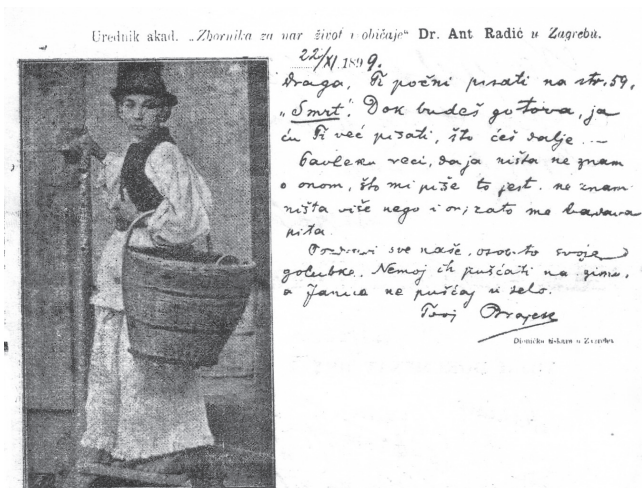 Urednik akad. „Zbornika za nar život i običaje“ Dr. Ant Radić u Zagrebu.
22/XI. 1899.
Draga, Ti počni pisati na str. 59,
„Smrt“. Dok budeš gotova, ja
ću Ti već pisati, što ćeš dalje. —
Pavleku reci, da ja ništa ne znam
o onom, što mi piše to jest. ne znam
ništa više nego i on; zato me badava
pita.
Pozdravi sve naše, osobito svoje
golubke. Nemoj ih puščati na zimu,
a Janice ne puščaj u selo.
Tvoj
Dionička tiskara u Zagrebu